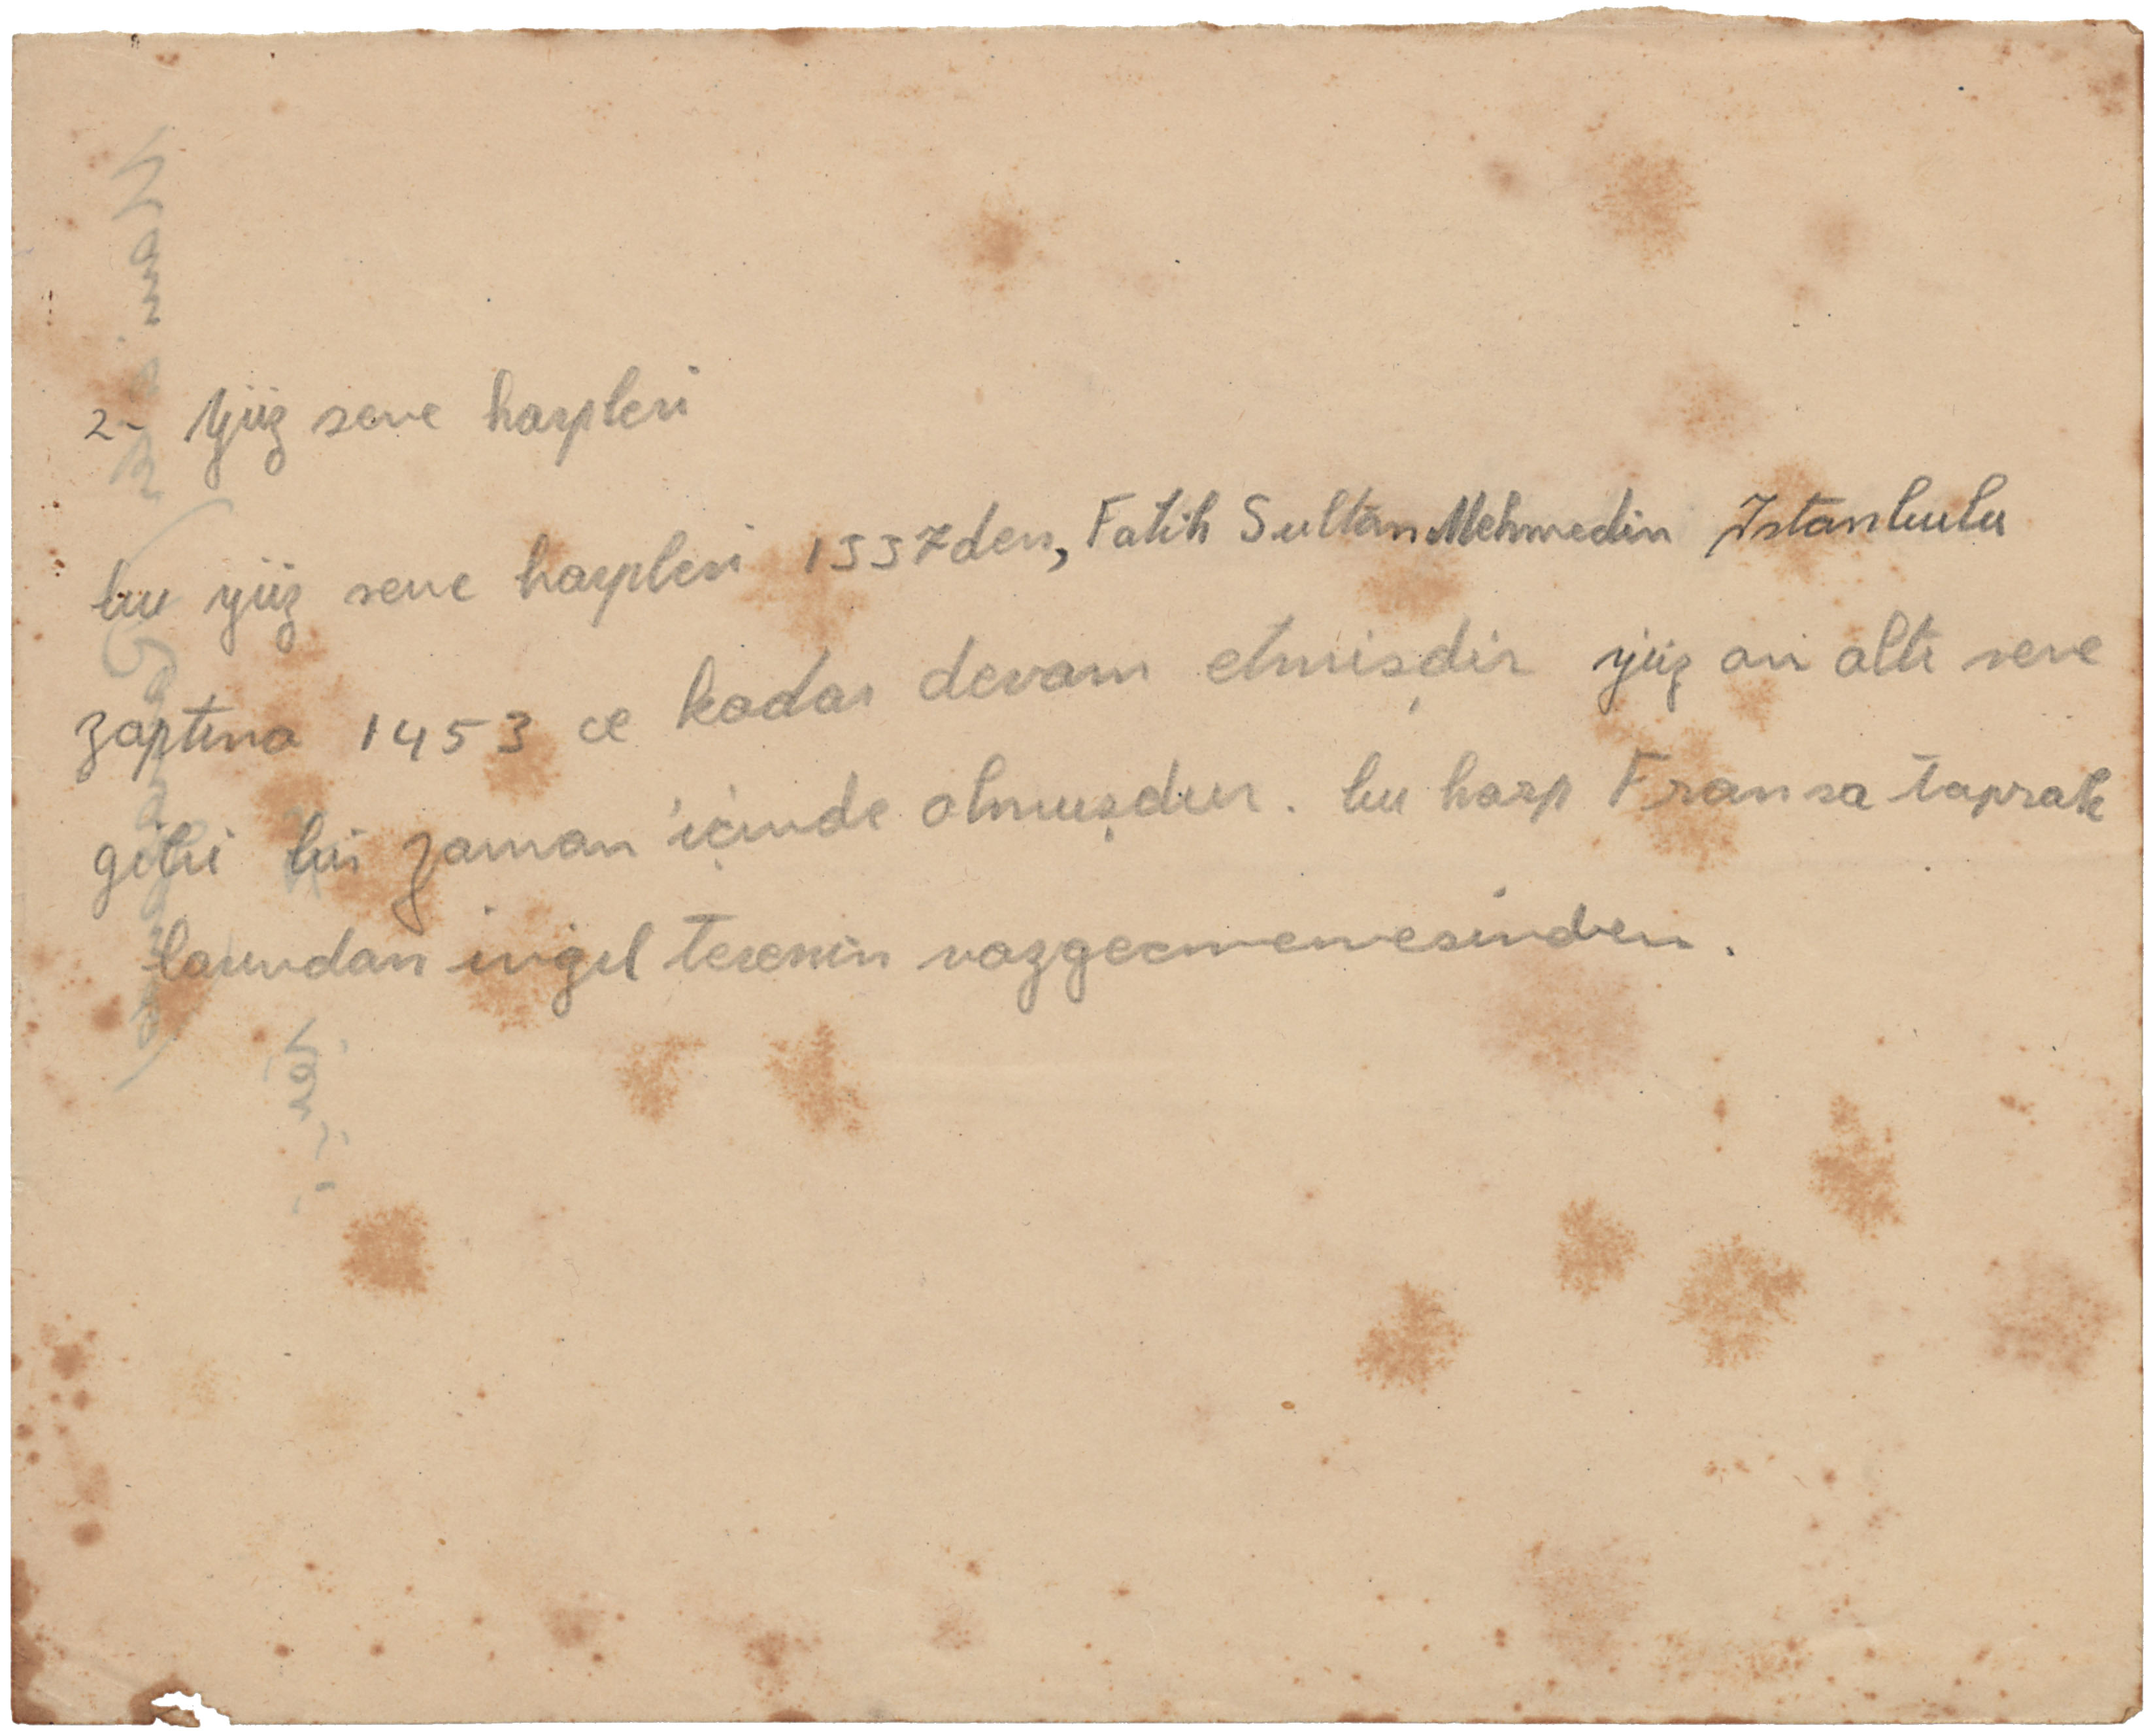 2- Yüz sene harpleri
bu yüz sene harpleri 1337den, Fatih Sultan Mehmedin Istanbulu
zaptına 1453 e kadar devam etmişdir yüz on altı sene
gibi bir zaman içinde olmuşdur. bu harp Fransa toprak
larından ingil terenin vazgecmemesinden.